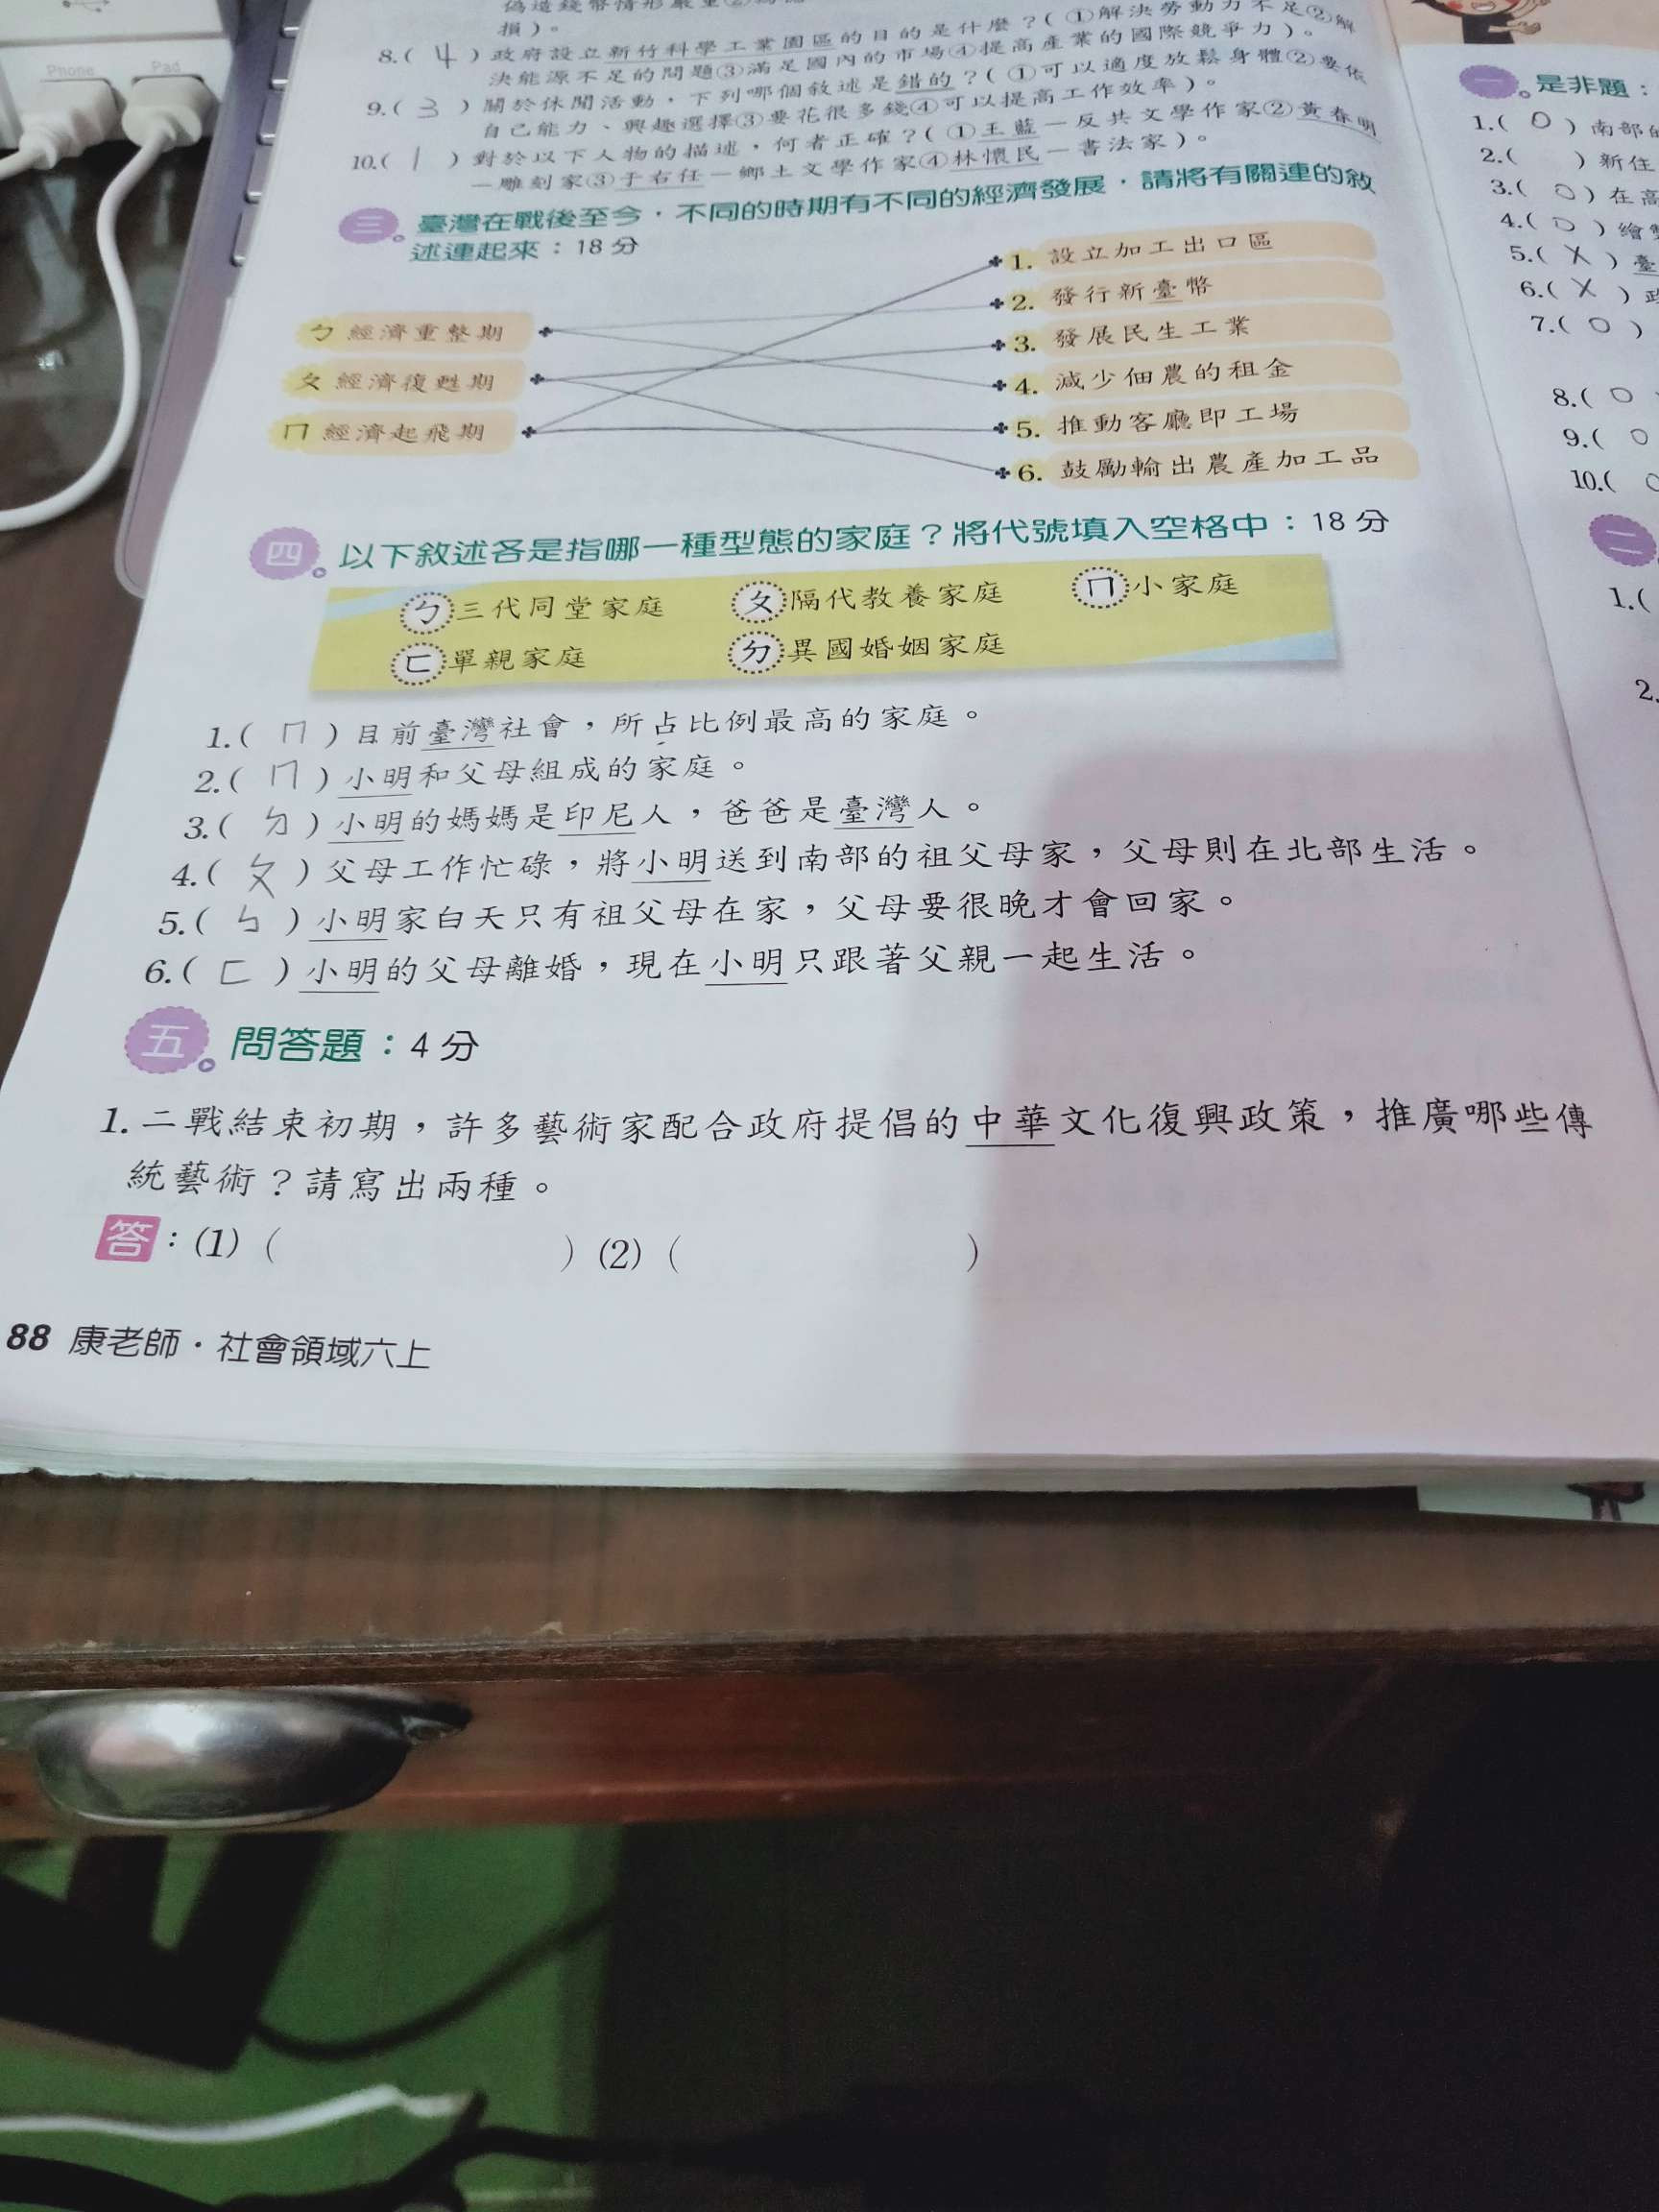 Phone Pad
損)。
8.( 4 )政府設立新竹科學工業園區的目的是什麼?(①解決勞動力不足②解
決能源不足的問題③滿足國內的市場④提高產業的國際競爭力)。
9.( 3 )關於休閒活動,下列哪個敘述是錯的?(①可以適度放鬆身體②要依
自己能力、興趣選擇③要花很多錢④可以提高工作效率)。
10.( 1 )對於以下人物的描述,何者正確?(①王藍-反共文學作家②黃春明
-雕刻家③于右任-鄉土文學作家④林懷民-書法家)。
三。臺灣在戰後至今,不同的時期有不同的經濟發展,請將有關連的敘
述連起來:18分
ㄅ 經濟重整期
ㄆ 經濟復甦期
ㄇ 經濟起飛期
1. 設立加工出口區
2. 發行新臺幣
3. 發展民生工業
4. 減少佃農的租金
5. 推動客廳即工場
6. 鼓勵輸出農產加工品
四。以下敘述各是指哪一種型態的家庭?將代號填入空格中:18分
ㄅ三代同堂家庭 ㄆ隔代教養家庭 ㄇ小家庭
ㄈ單親家庭 ㄉ異國婚姻家庭
1.( ㄇ )目前臺灣社會,所占比例最高的家庭。
2.( ㄇ )小明和父母組成的家庭。
3.( ㄉ )小明的媽媽是印尼人,爸爸是臺灣人。
4.( ㄆ )父母工作忙碌,將小明送到南部的祖父母家,父母則在北部生活。
5.( ㄅ )小明家白天只有祖父母在家,父母要很晚才會回家。
6.( ㄈ )小明的父母離婚,現在小明只跟著父親一起生活。
五。問答題:4分
1.二戰結束初期,許多藝術家配合政府提倡的中華文化復興政策,推廣哪些傳
統藝術?請寫出兩種。
答:(1)( )(2)( )
88 康老師·社會領域六上
一。是非題:
1.( O )南部的
2.( )新住
3.( O )在高
4.( O )繪
5.( X )臺
6.( X )政
7.( O )
8.( O
9.( O
10.( O
二
1.(
2.